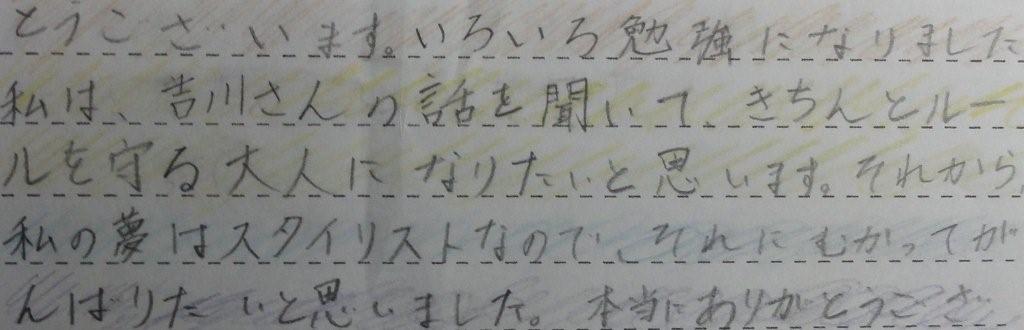 とうございます。いろいろ勉強になりました
私は、吉川さんの話を聞いて、きちんとルー
ルを守る大人になりたいと思います。それから、
私の夢はスタイリストなので、それにむかってが
んばりたいと思いました。本当にありがとうござ